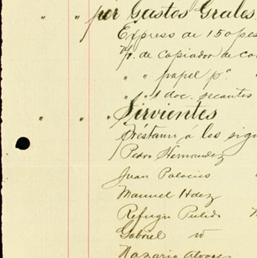 " " por Gastos Grales
Express de 150 pes
" de copiador de co
" " papel p
" 1 doc. secantes
" " " Sirvientes
Préstamo a los sig
Pedro Hernandez
Juan Palacios
Manuel Hdez
Refugio Pulido
Gabriel
Nazario